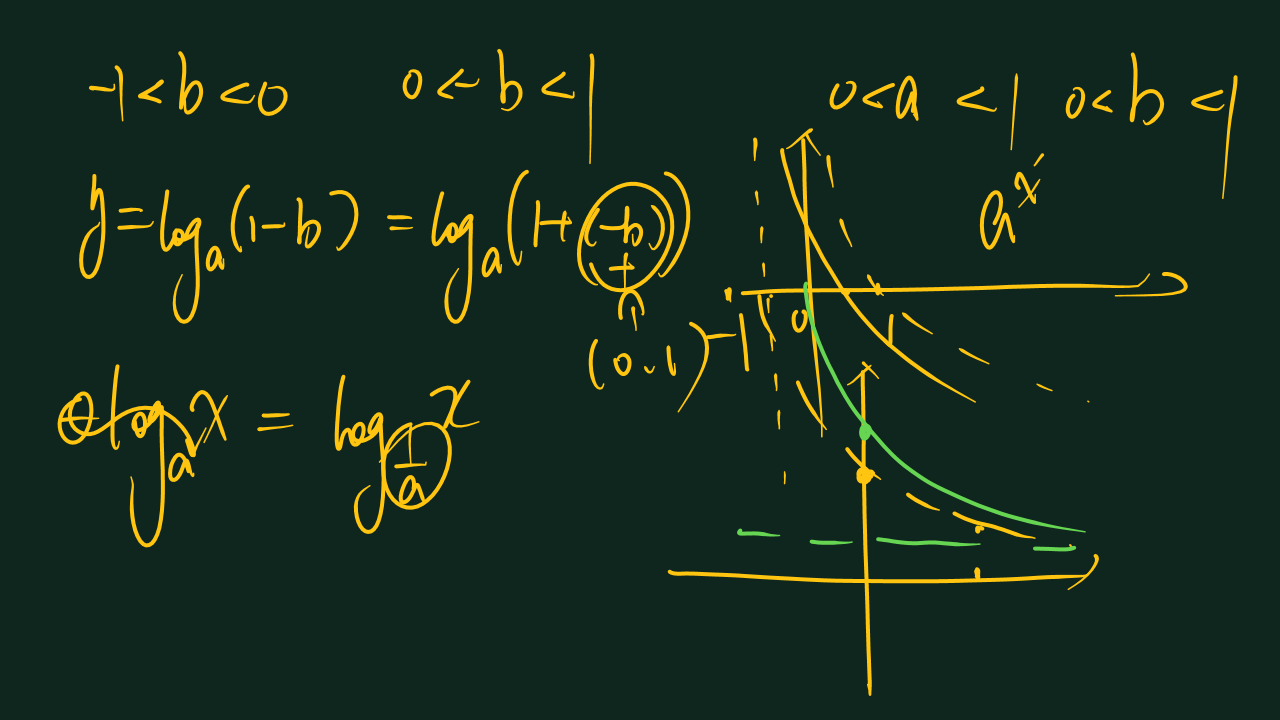 -1<b<0 0<-b<1 0<a<1 0<b<1
y=log_a(1-b)=log_a(1+(-b)) a^x
+
(0.1) -1 0 1
⊖log_a x = log_{1/a} x